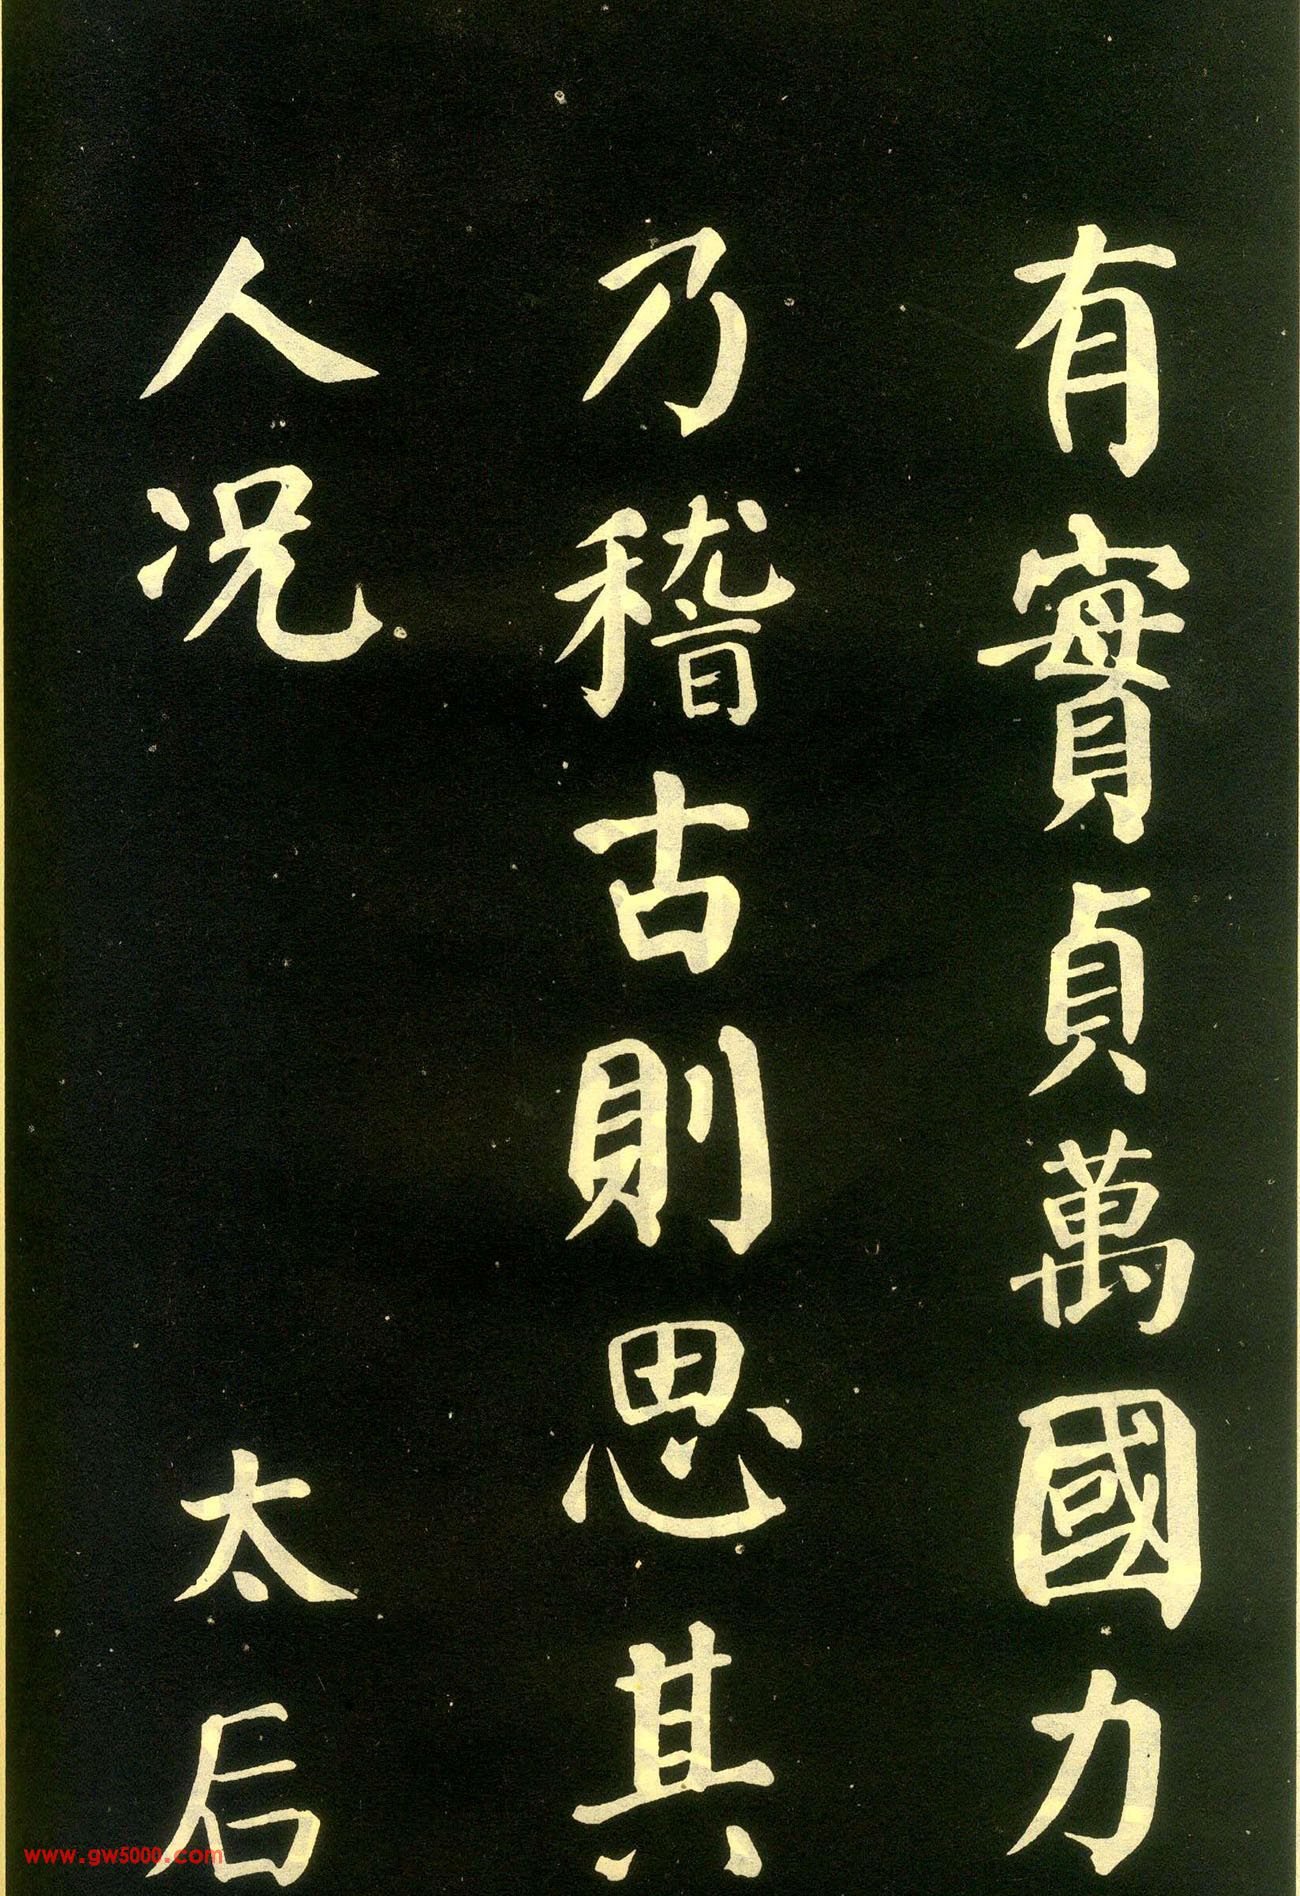 有實貞萬國力
乃稽古則思其
人况 太后
www.gw5000.com